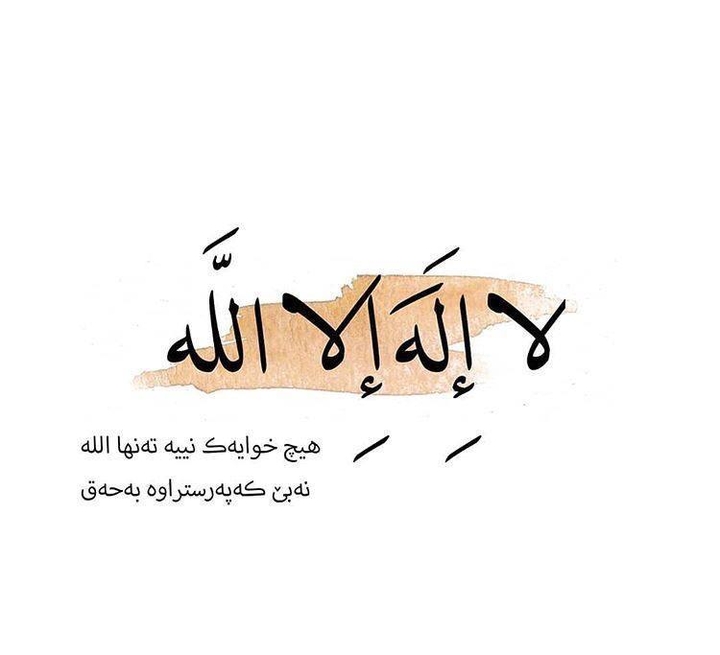 لا إِلَهَ إِلا اللَّه
هیچ خوایەک نییە تەنها الله
نەبێ کەپەرستراوە بەحەق